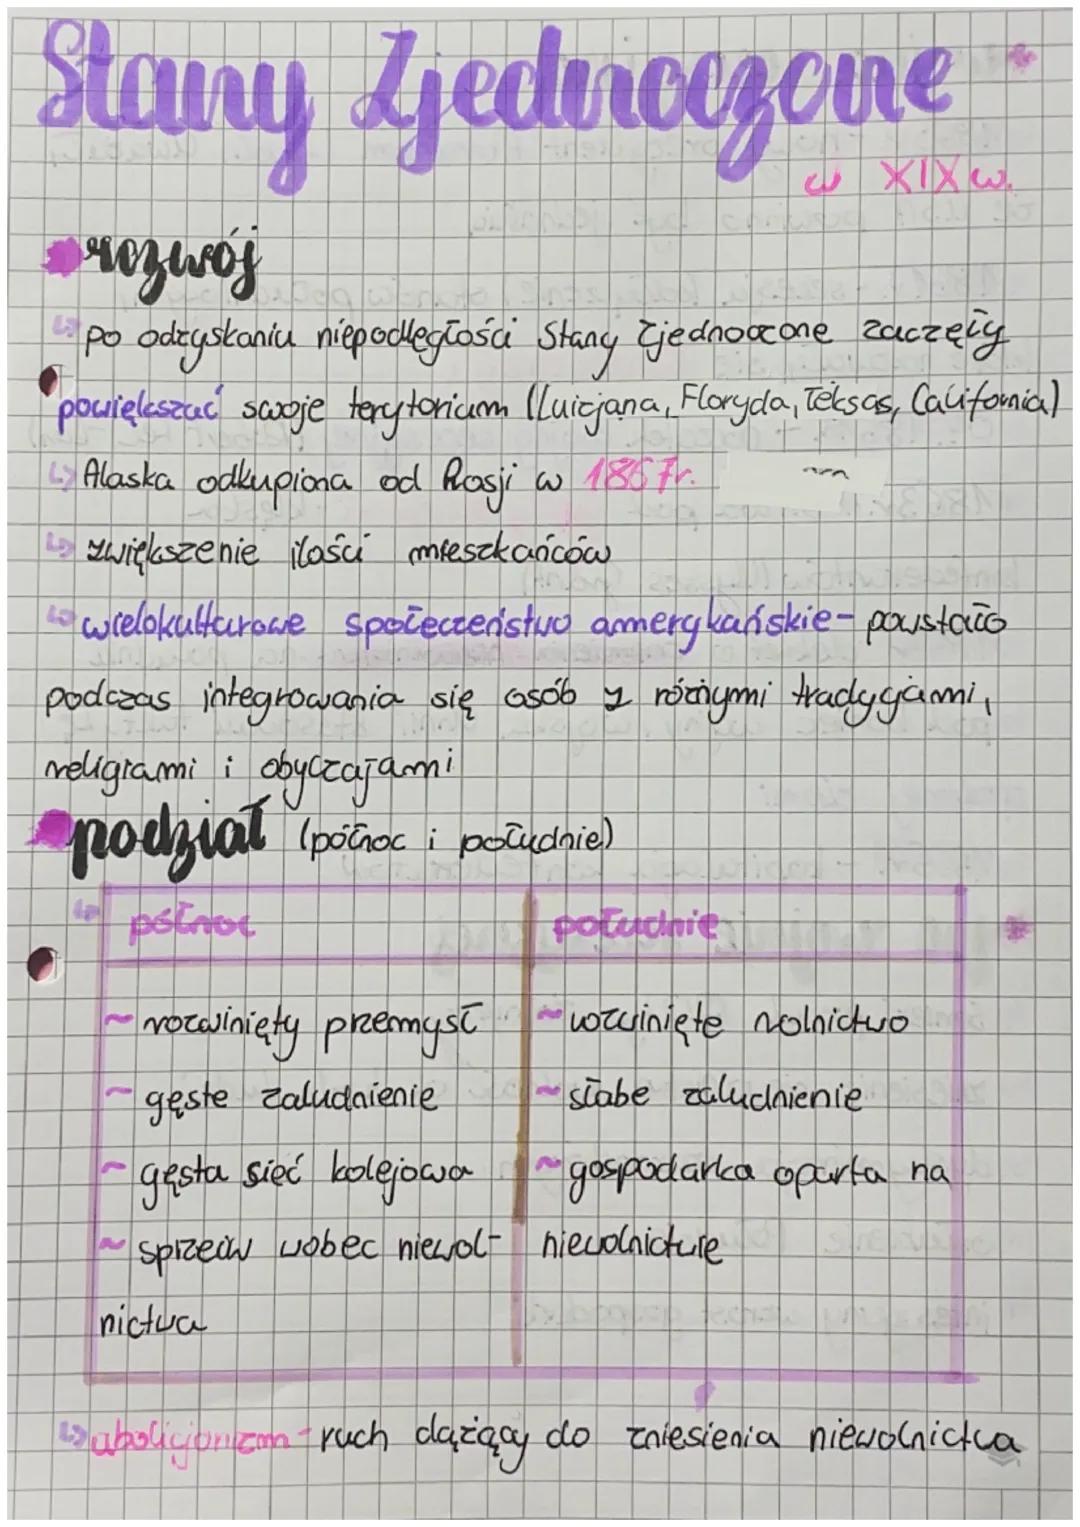 Stany Zjednoczone
w XIX w.
rozwój
po odzyskaniu niepodległości Stany Zjednoczone zaczęły
powiększać swoje terytorium (Luizjana, Floryda, Teksas, California)
Alaska odkupiona od Rosji w 1867r.
zwiększenie ilości mieszkańców
wielokulturowe społeczeństwo amerykańskie - powstało
podczas integrowania się osób z różnymi tradycjami,
religiami i obyczajami
podział (północ i południe)
północ południe
~ rozwinięty przemysł ~ rozwinięte rolnictwo
~ gęste zaludnienie ~ słabe zaludnienie
~ gęsta sieć kolejowa ~ gospodarka oparta na
~ sprzeciw wobec niewol- niewolnictwie
nictwa
abolicjonizm - ruch dążący do zniesienia niewolnictwa